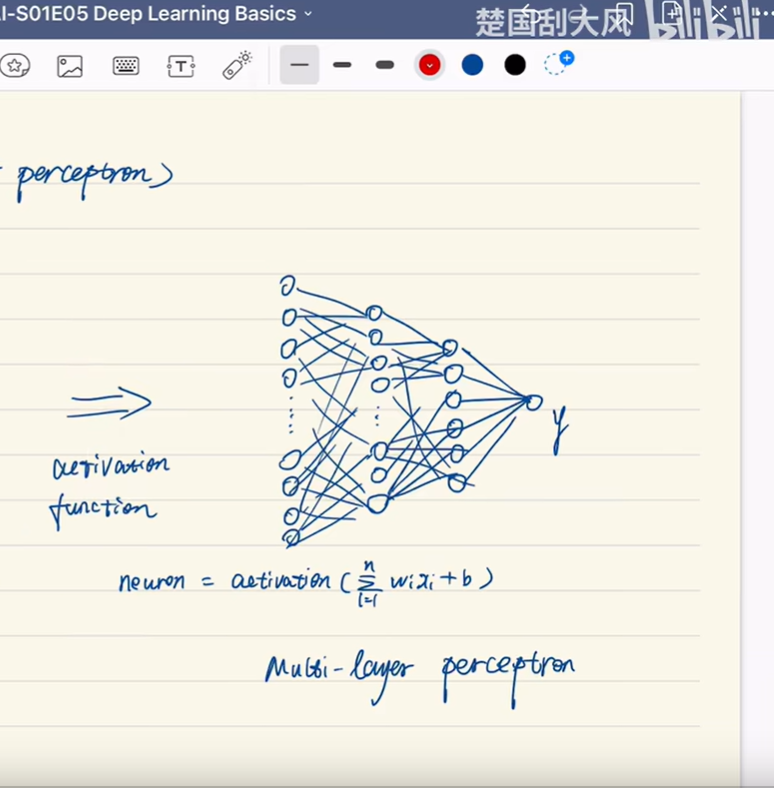 I-S01E05 Deep Learning Basics
楚国刮大风
bilibili
T
perceptron)
activation
function
y
neuron = activation ( n∑i=1 wixi + b )
Multi-layer perceptron